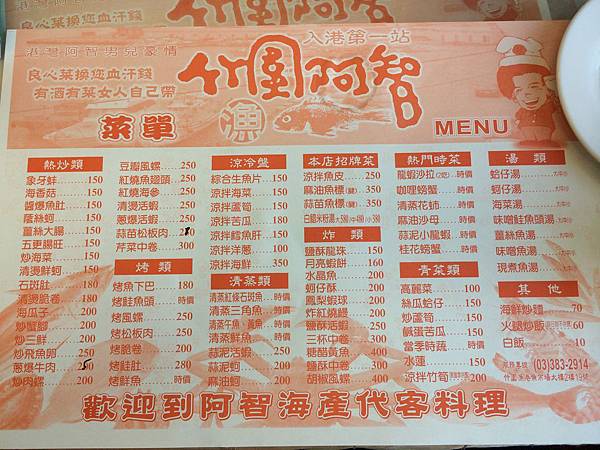 入港第一站
港灣阿智男兒豪情
良心菜換您血汗錢
有酒有菜女人自己帶
竹圍阿智
漁
菜單
MENU
熱炒類
象牙鮮 150
海香菇 150
醬爆魚肚 150
蔭絲蚵 150
薑絲大腸 150
五更腸旺 150
炒海菜 150
清燙鮮蚵 150
石斑肚 180
清燙脆卷 180
海瓜子 200
炒蟹腳 200
炒三鮮 200
炒飛魚卵 250
蔥爆牛肉
炒肉螺 200
豆瓣風螺 250
紅燒魚翅頭 250
紅燒海參 250
清燙活蝦 250
蔥爆活蝦 250
蒜苗松板肉
芹菜中卷 300
烤類
烤魚下巴 180
烤鮭魚頭 時價
烤風螺 250
烤松板肉 250
烤脆卷 200
烤鮭肚 280
烤鮮魚 時價
涼冷盤
綜合生魚片 150
涼拌海菜 150
涼拌蘆筍 150
涼拌苦瓜 180
涼拌鱈魚肝 150
涼拌洋蔥 100
涼拌海鮮 350
清蒸類
清蒸紅條石斑魚 時價
清蒸三角魚 時價
清蒸午魚、黃魚 時價
清蒸鮮魚 時價
蒜泥活蝦 250
蒜泥蚵 200
麻油蚵 200
本店招牌菜
涼拌魚皮 250
麻油魚標(鰾) 350
蒜苗魚標(鰾) 350
炸類
鹽酥龍珠 150
月亮蝦餅 160
水晶魚 200
蚵仔酥 200
鳳梨蝦球 200
炸紅燒鰻 200
鹽酥活蝦 250
三杯中卷 300
糖醋黃魚 300
鹽酥中卷 300
胡椒風螺 300
熱門時菜
龍蝦沙拉(2吃) 時價
咖哩螃蟹 時價
清蒸花蚄 時價
麻油沙母 時價
蒜泥小龍蝦 時價
桂花螃蟹 時價
青菜類
高麗菜 100
絲瓜蛤仔 150
炒蘆筍 150
鹹蛋苦瓜 150
當季時蔬 時價
水蓮 150
涼拌竹筍
湯類
蛤仔湯 大中小
蚵仔湯 大中小
海菜湯 大中小
味噌鮭魚頭湯 大中小
薑絲魚湯 大中小
味噌魚湯 大中小
現煮魚湯 大中小
其他
海鮮炒麵
火腿炒飯 60
白飯 10
服務專線 (03)383-2914
竹圍漁港魚市場大樓2樓19號
歡迎到阿智海產代客料理